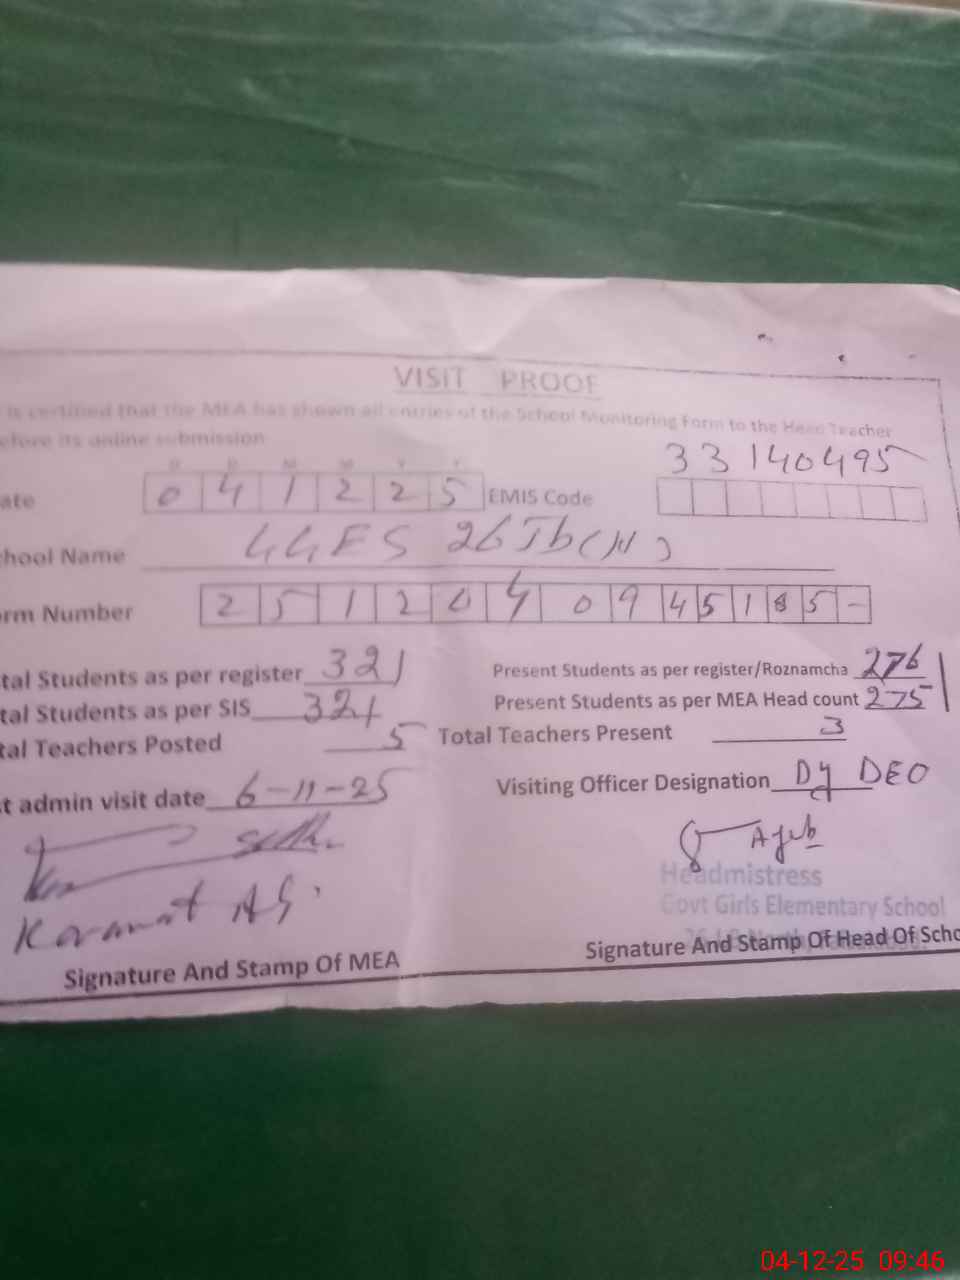 VISIT PROOF
is certified that the MEA has shown all entries of the School Monitoring Form to the Head Teacher
efore its online submission
33140495
ate 041225 EMIS Code
chool Name GGES 26 Jb (N)
orm Number 2512040945185-
tal Students as per register 321 Present Students as per register/Roznamcha 276
tal Students as per SIS 321 Present Students as per MEA Head count 275
tal Teachers Posted 5 Total Teachers Present 3
t admin visit date 6-11-25 Visiting Officer Designation Dy DEO
Karamat
Headmistress
Govt Girls Elementary School
Signature And Stamp Of MEA Signature And Stamp Of Head Of Scho
04-12-25 09:46